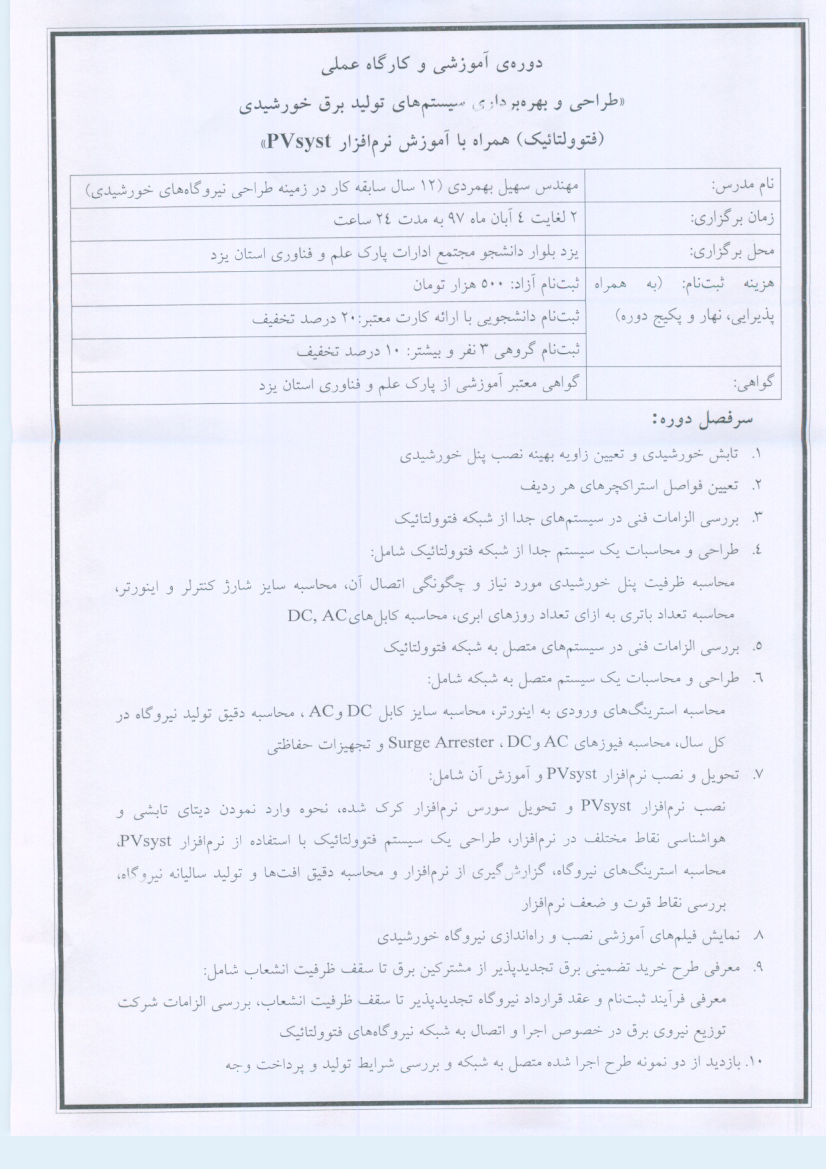 دوره‌ی آموزشی و کارگاه عملی
«طراحی و بهره‌برداری سیستم‌های تولید برق خورشیدی
(فتوولتائیک) همراه با آموزش نرم‌افزار PVsyst»
نام مدرس: مهندس سهیل بهمردی (۱۲ سال سابقه کار در زمینه طراحی نیروگاه‌های خورشیدی)
زمان برگزاری: ۲ لغایت ٤ آبان ماه ۹۷ به مدت ۲٤ ساعت
محل برگزاری: یزد بلوار دانشجو مجتمع ادارات پارک علم و فناوری استان یزد
هزینه ثبت‌نام: (به همراه ثبت‌نام آزاد: ۵۰۰ هزار تومان
پذیرایی، نهار و پکیج دوره) ثبت‌نام دانشجویی با ارائه کارت معتبر:۲۰ درصد تخفیف
ثبت‌نام گروهی ۳ نفر و بیشتر: ۱۰ درصد تخفیف
گواهی: گواهی معتبر آموزشی از پارک علم و فناوری استان یزد
سرفصل دوره:
۱. تابش خورشیدی و تعیین زاویه بهینه نصب پنل خورشیدی
۲. تعیین فواصل استراکچرهای هر ردیف
۳. بررسی الزامات فنی در سیستم‌های جدا از شبکه فتوولتائیک
٤. طراحی و محاسبات یک سیستم جدا از شبکه فتوولتائیک شامل:
محاسبه ظرفیت پنل خورشیدی مورد نیاز و چگونگی اتصال آن، محاسبه سایز شارژ کنترلر و اینورتر،
محاسبه تعداد باتری به ازای تعداد روزهای ابری، محاسبه کابل‌های DC, AC
۵. بررسی الزامات فنی در سیستم‌های متصل به شبکه فتوولتائیک
٦. طراحی و محاسبات یک سیستم متصل به شبکه شامل:
محاسبه استرینگ‌های ورودی به اینورتر، محاسبه سایز کابل DC و AC ، محاسبه دقیق تولید نیروگاه در
کل سال، محاسبه فیوزهای AC و DC ، Surge Arrester و تجهیزات حفاظتی
۷. تحویل و نصب نرم‌افزار PVsyst و آموزش آن شامل:
نصب نرم‌افزار PVsyst و تحویل سورس نرم‌افزار کرک شده، نحوه وارد نمودن دیتای تابشی و
هواشناسی نقاط مختلف در نرم‌افزار، طراحی یک سیستم فتوولتائیک با استفاده از نرم‌افزار PVsyst،
محاسبه استرینگ‌های نیروگاه، گزارش‌گیری از نرم‌افزار و محاسبه دقیق افت‌ها و تولید سالیانه نیروگاه،
بررسی نقاط قوت و ضعف نرم‌افزار
۸. نمایش فیلم‌های آموزشی نصب و راه‌اندازی نیروگاه خورشیدی
۹. معرفی طرح خرید تضمینی برق تجدیدپذیر از مشترکین برق تا سقف ظرفیت انشعاب شامل:
معرفی فرآیند ثبت‌نام و عقد قرارداد نیروگاه تجدیدپذیر تا سقف ظرفیت انشعاب، بررسی الزامات شرکت
توزیع نیروی برق در خصوص اجرا و اتصال به شبکه نیروگاه‌های فتوولتائیک
۱۰. بازدید از دو نمونه طرح اجرا شده متصل به شبکه و بررسی شرایط تولید و پرداخت وجه